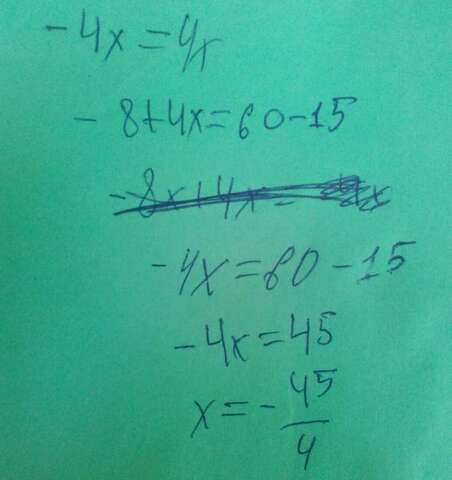 -4x=4x
-8+4x=60-15
-4x=60-15
-4x=45
x=-45/4